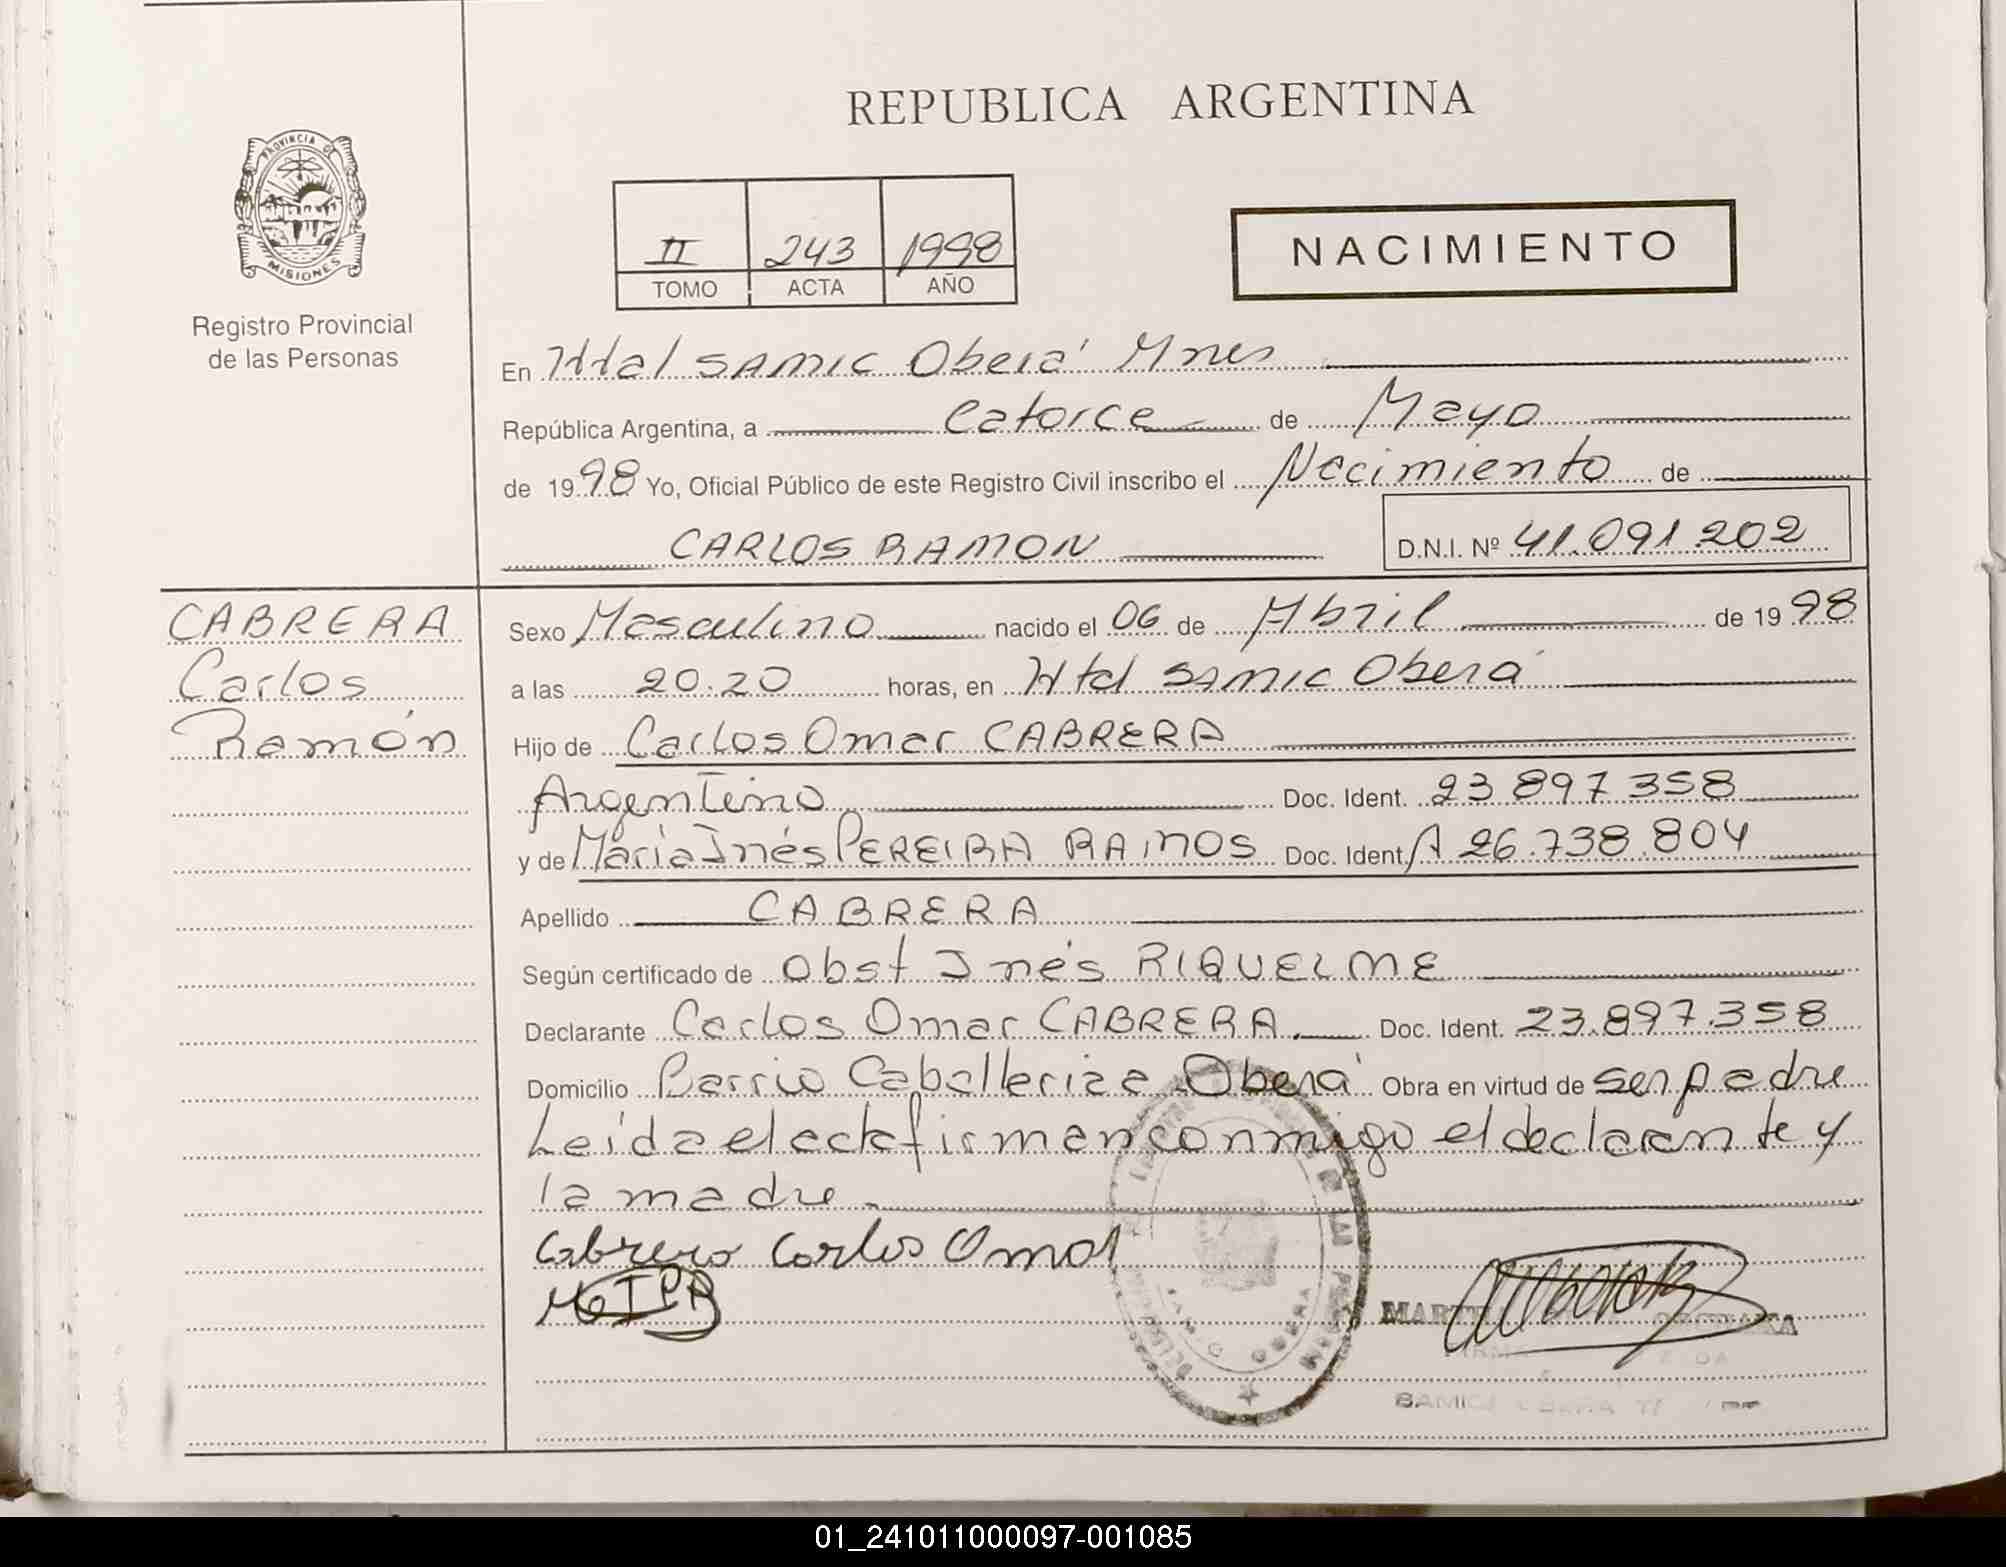 REPUBLICA ARGENTINA
PROVINCIA DE
MISIONES
Registro Provincial
de las Personas
II 243 1998
TOMO ACTA AÑO
NACIMIENTO
En Htal SAMIC Oberá Mnes
República Argentina, a Catorce de Mayo
de 1998 Yo, Oficial Público de este Registro Civil inscribo el Nacimiento de
CARLOS RAMON D.N.I. Nº 41.091.202
CABRERA
Carlos
Ramón
Sexo Masculino nacido el 06 de Abril de 1998
a las 20.20 horas, en Htal SAMIC Oberá
Hijo de Carlos Omar CABRERA
Argentino Doc. Ident. 23 897 358
y de María Inés PEREIRA RAMOS Doc. Ident. A 26.738.804
Apellido CABRERA
Según certificado de Obst Inés RIQUELME
Declarante Carlos Omar CABRERA. Doc. Ident. 23.897.358
Domicilio Barrio Caballeriza Oberá Obra en virtud de ser padre
Leída el acta firman conmigo el declarante y
la madre.
Cabrera Carlos Omar
MIPR
OBERA
01_241011000097-001085